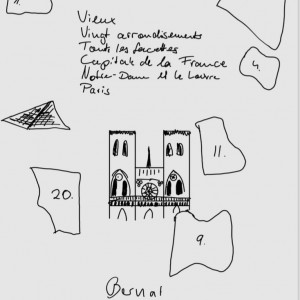 11.
Vieux
Vingt arrondissements
Toutes les facettes
Capitale de la France
Notre-Dame et le Louvre
Paris
4.
11.
20.
9.
Bernat